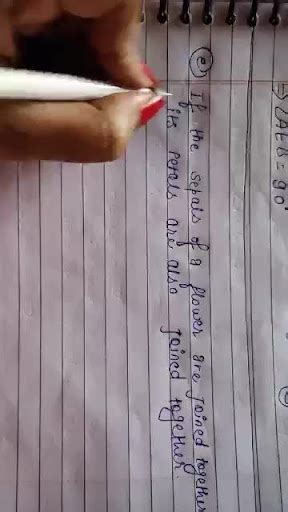 ⇒ ∠AEB = 90°
(e) If the sepals of a flower are joined together
its petals are also joined together.